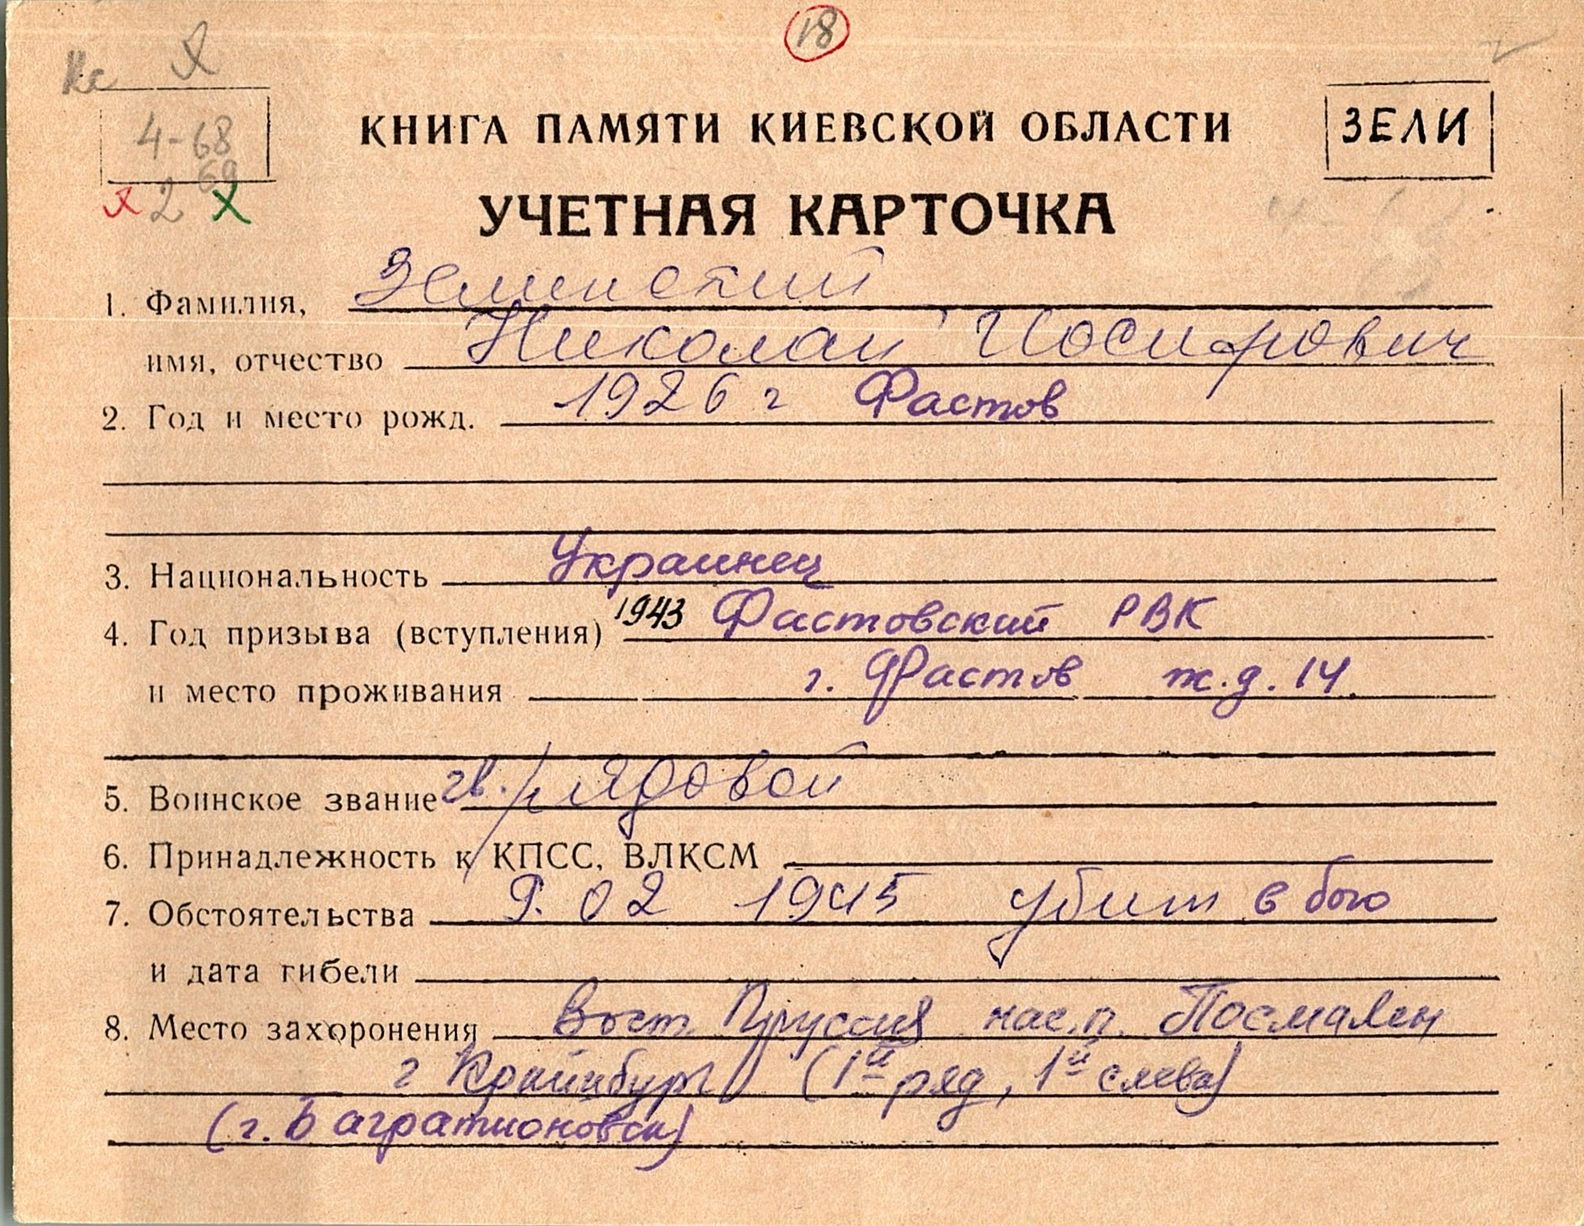 18
4-68
69
2
КНИГА ПАМЯТИ КИЕВСКОЙ ОБЛАСТИ
ЗЕЛИ
УЧЕТНАЯ КАРТОЧКА
1. Фамилия, Зелинский
имя, отчество Николай Иосифович
2. Год и место рожд. 1926 г Фастов
3. Национальность Украинец
4. Год призыва (вступления) 1943 Фастовский РВК
и место проживания г. Фастов ж.д. 14.
5. Воинское звание гв. рядовой
6. Принадлежность к КПСС, ВЛКСМ
7. Обстоятельства 9. 02 1945 убит в бою
и дата гибели
8. Место захоронения Вост Пруссия нас.п. Посмален
г (1й ряд, 1й слева)
(г. Багратионовск)